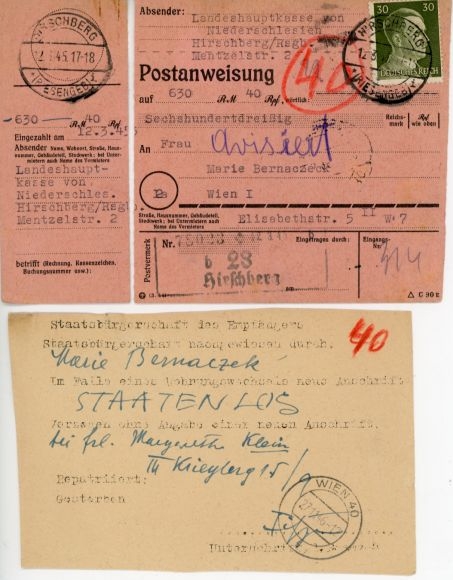 HIRSCHBERG
2.3.45.17-18
(RIESENGEB.)
-630 RM 40 Rpf.
Eingezahlt am 12.3.45
Absender Name, Wohnort, Straße, Haus-
nummer, Gebäudeteil,
Stockwerk; bei Unter-
mietern auch Name
des Vermieters
Landeshaupt-
kasse von
Niederschles.
Hirschberg/Rsgb.
Mentzelstr. 2
betrifft (Rechnung, Kassenzeichen,
Buchungsnummer usw.):
Absender:
Landeshauptkasse von
Niederschlesien
Hirschberg/Rsgb.
Mentzelstr. 2
40
30 30
DEUTSCHES REICH
HIRSCHBERG
(RIESENGEB.)
Postanweisung
auf 630 RM 40 Rpf, wörtlich:
Sechshundertdreißig
Reichs-
mark
Rpf
wie oben
An Frau avisiert
Marie Bernaczek
Wien I
Straße, Hausnummer, Gebäudeteil,
Stockwerk; bei Untermietern auch
Name des Vermieters
Elisabethstr. 5 II W.7
Postvermerk
Nr.
b 28
Hirschberg
Eingetragen durch:
Eingangs-
Nr.
414
C 90 E
Staatsbürgerschaft des Empfängers
Staatsbürgerschaft nachgewiesen durch:
40
Marie Bernaczek
Im Falle eines Wohnungswechsels neue Anschrift
STAATENLOS
Verzogen ohne Angabe einer neuen Anschrift.
bei Frl. Margarethe Klein
III Krieglerg 15/9
Repatriiert:
Gestorben
WIEN 40
Unterschrift